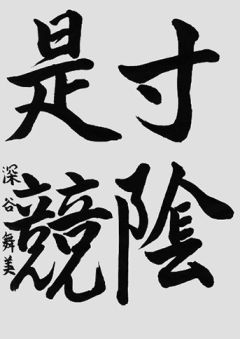 寸陰
是競
深谷舞美